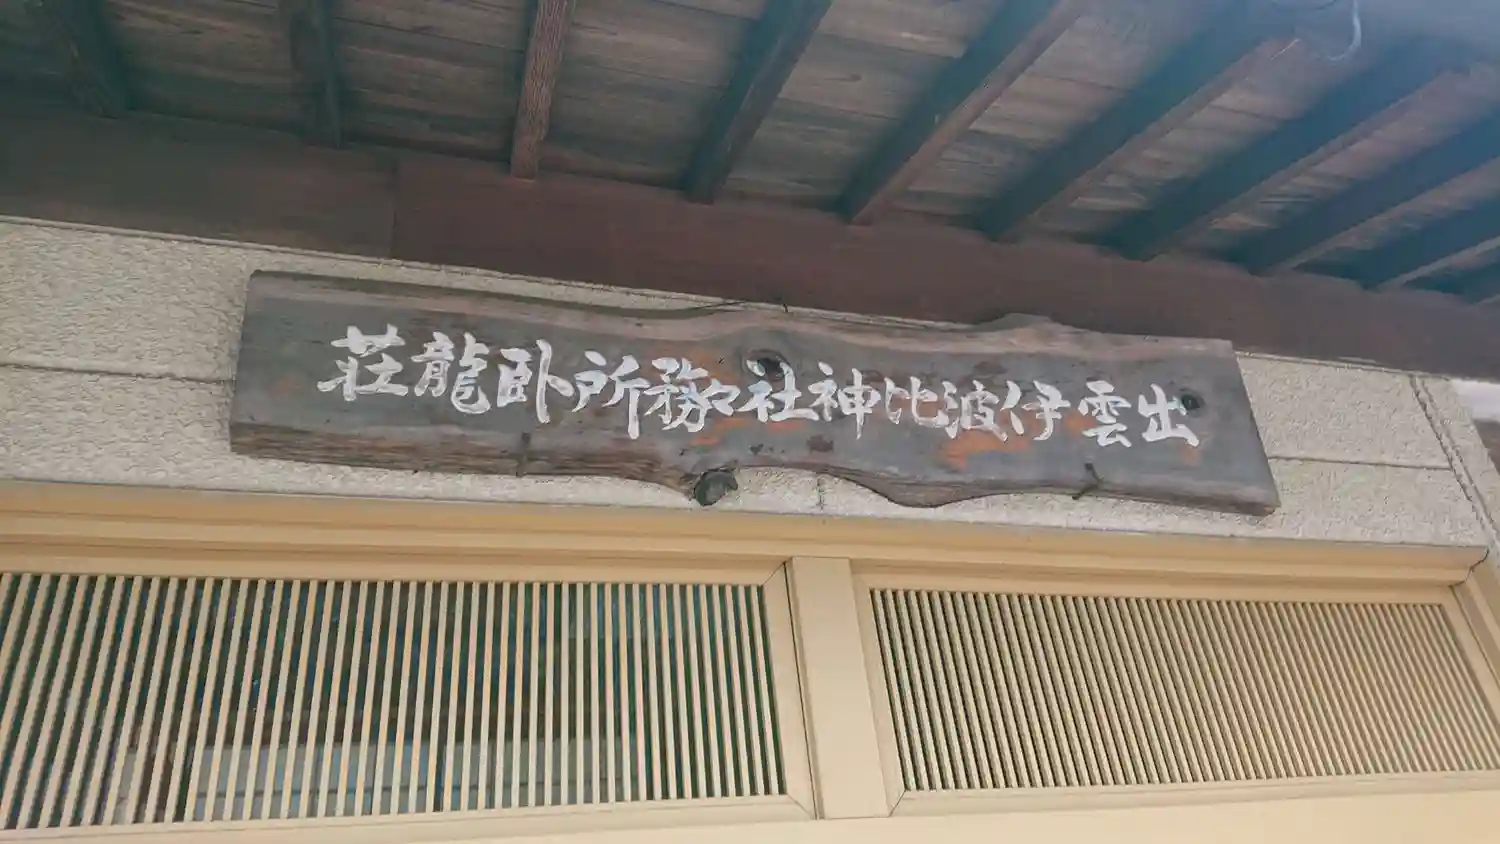 出雲伊波比神社々務所卧龍荘